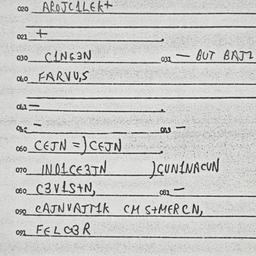 020 AROJC1LEK+
021 +
030 C1NG3N 031 — BUT BAJ2
040 FARVU,S
041 =
042 — 043 —
060 CEJN =) CEJN
070 IND1CE3JN )GUN1NACUN
080 C3V1S+N, 081 —
090 CAJNVAJT1K CM S+MERCN,
091 FELC03R